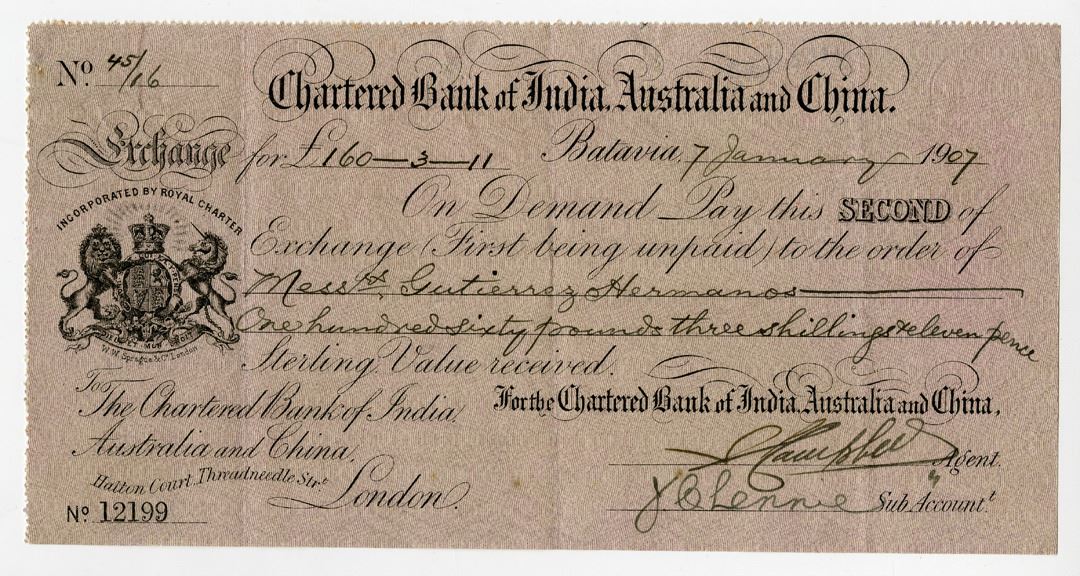 No 45/16
Chartered Bank of India, Australia and China.
Exchange for £160—3—11 Batavia, 7 January 1907
INCORPORATED BY ROYAL CHARTER
On Demand Pay this SECOND of
Exchange (First being unpaid) to the order of
Messrs. Gutierrez Hermanos
One hundred sixty pounds three shillings & eleven pence
Sterling, Value received.
W.W. Sprague & Co. London
To
The Chartered Bank of India
Australia and China,
Hatton Court, Threadneedle Strt
London.
For the Chartered Bank of India, Australia and China,
Campbell Agent.
J C Lennie Sub Accountt
No 12199